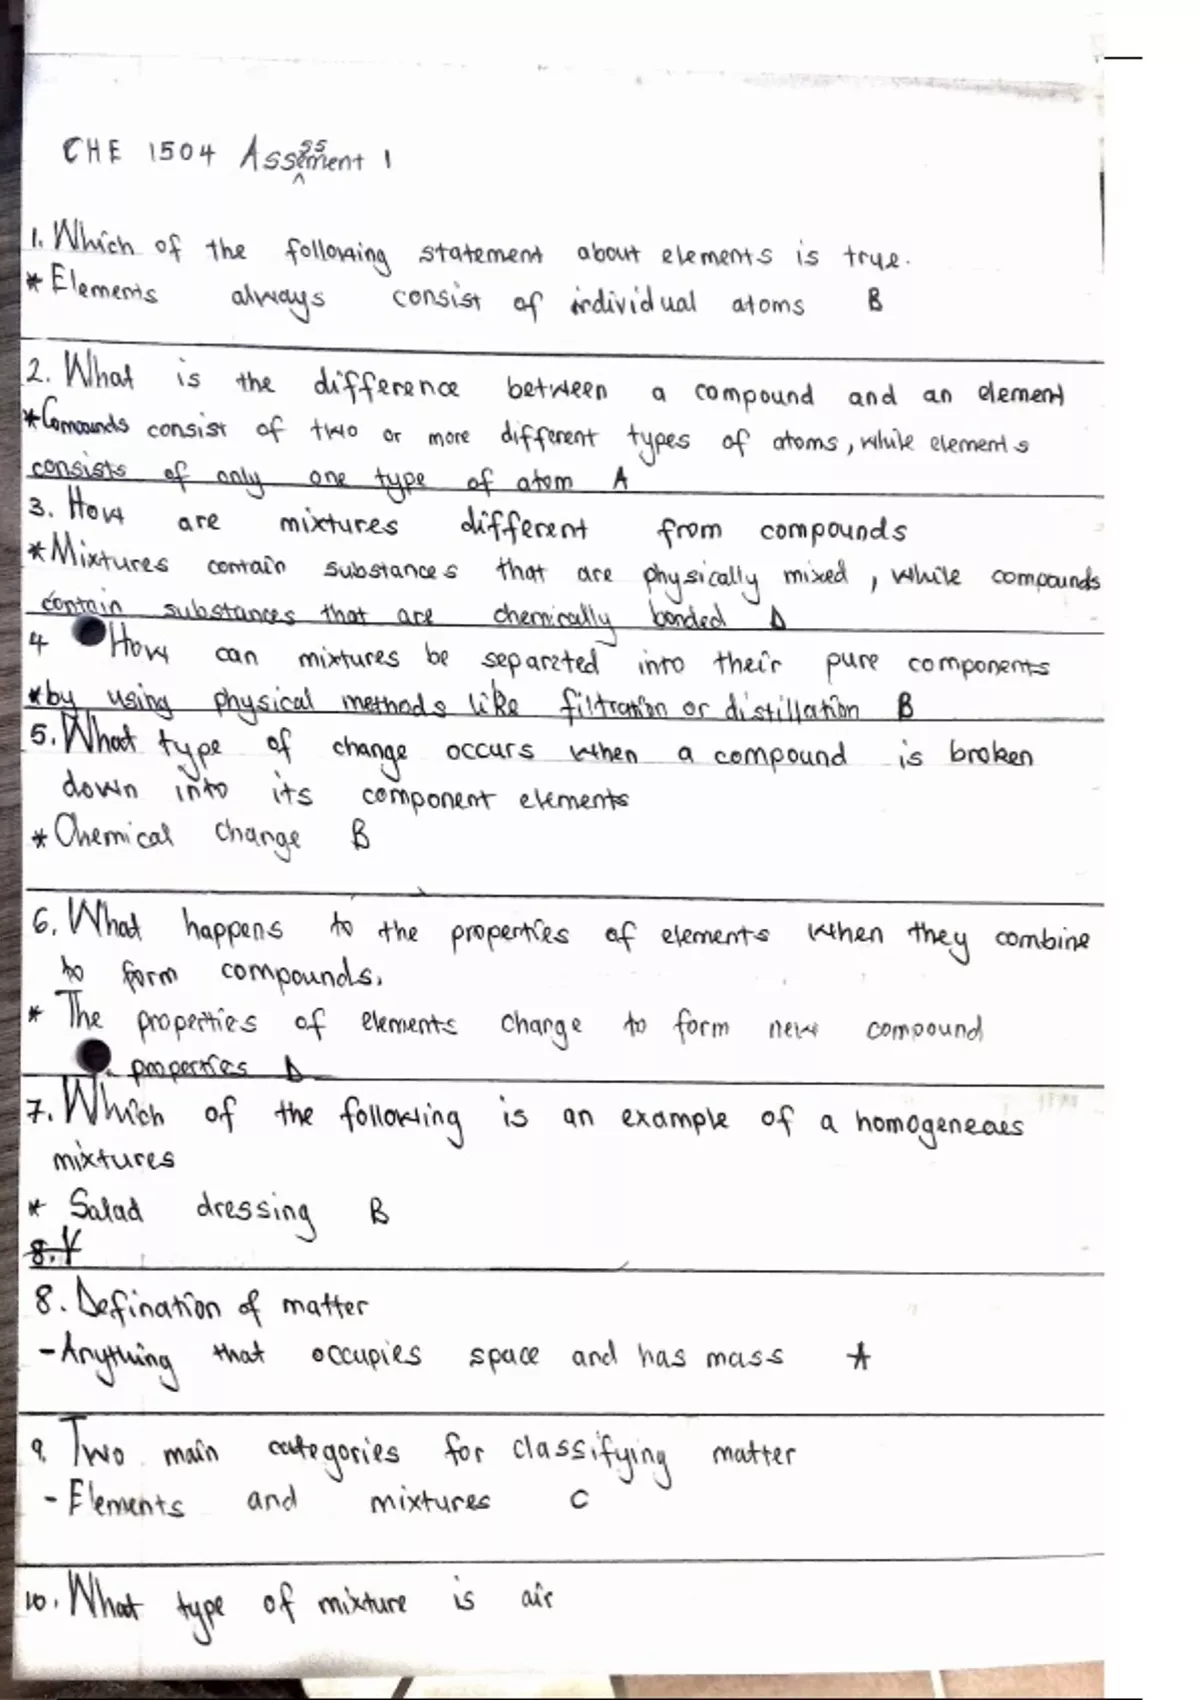 CHE 1504 Assessment 1
1. Which of the following statement about elements is true.
* Elements always consist of individual atoms B
2. What is the difference between a compound and an element
* Compounds consist of two or more different types of atoms, while elements
consists of only one type of atom A
3. How are mixtures different from compounds
* Mixtures contain substances that are physically mixed, while compounds
contain substances that are chemically bonded D
4 How can mixtures be separated into their pure components
* by using physical methods like filtration or distillation B
5. What type of change occurs when a compound is broken
down into its component elements
* Chemical change B
6. What happens to the properties of elements when they combine
to form compounds.
* The properties of elements change to form new compound
properties D
7. Which of the following is an example of a homogeneaes
mixtures
* Salad dressing B
8. Y
8. Defination of matter
- Anything that occupies space and has mass A
9. Two main categories for classifying matter
- Elements and mixtures C
10. What type of mixture is air